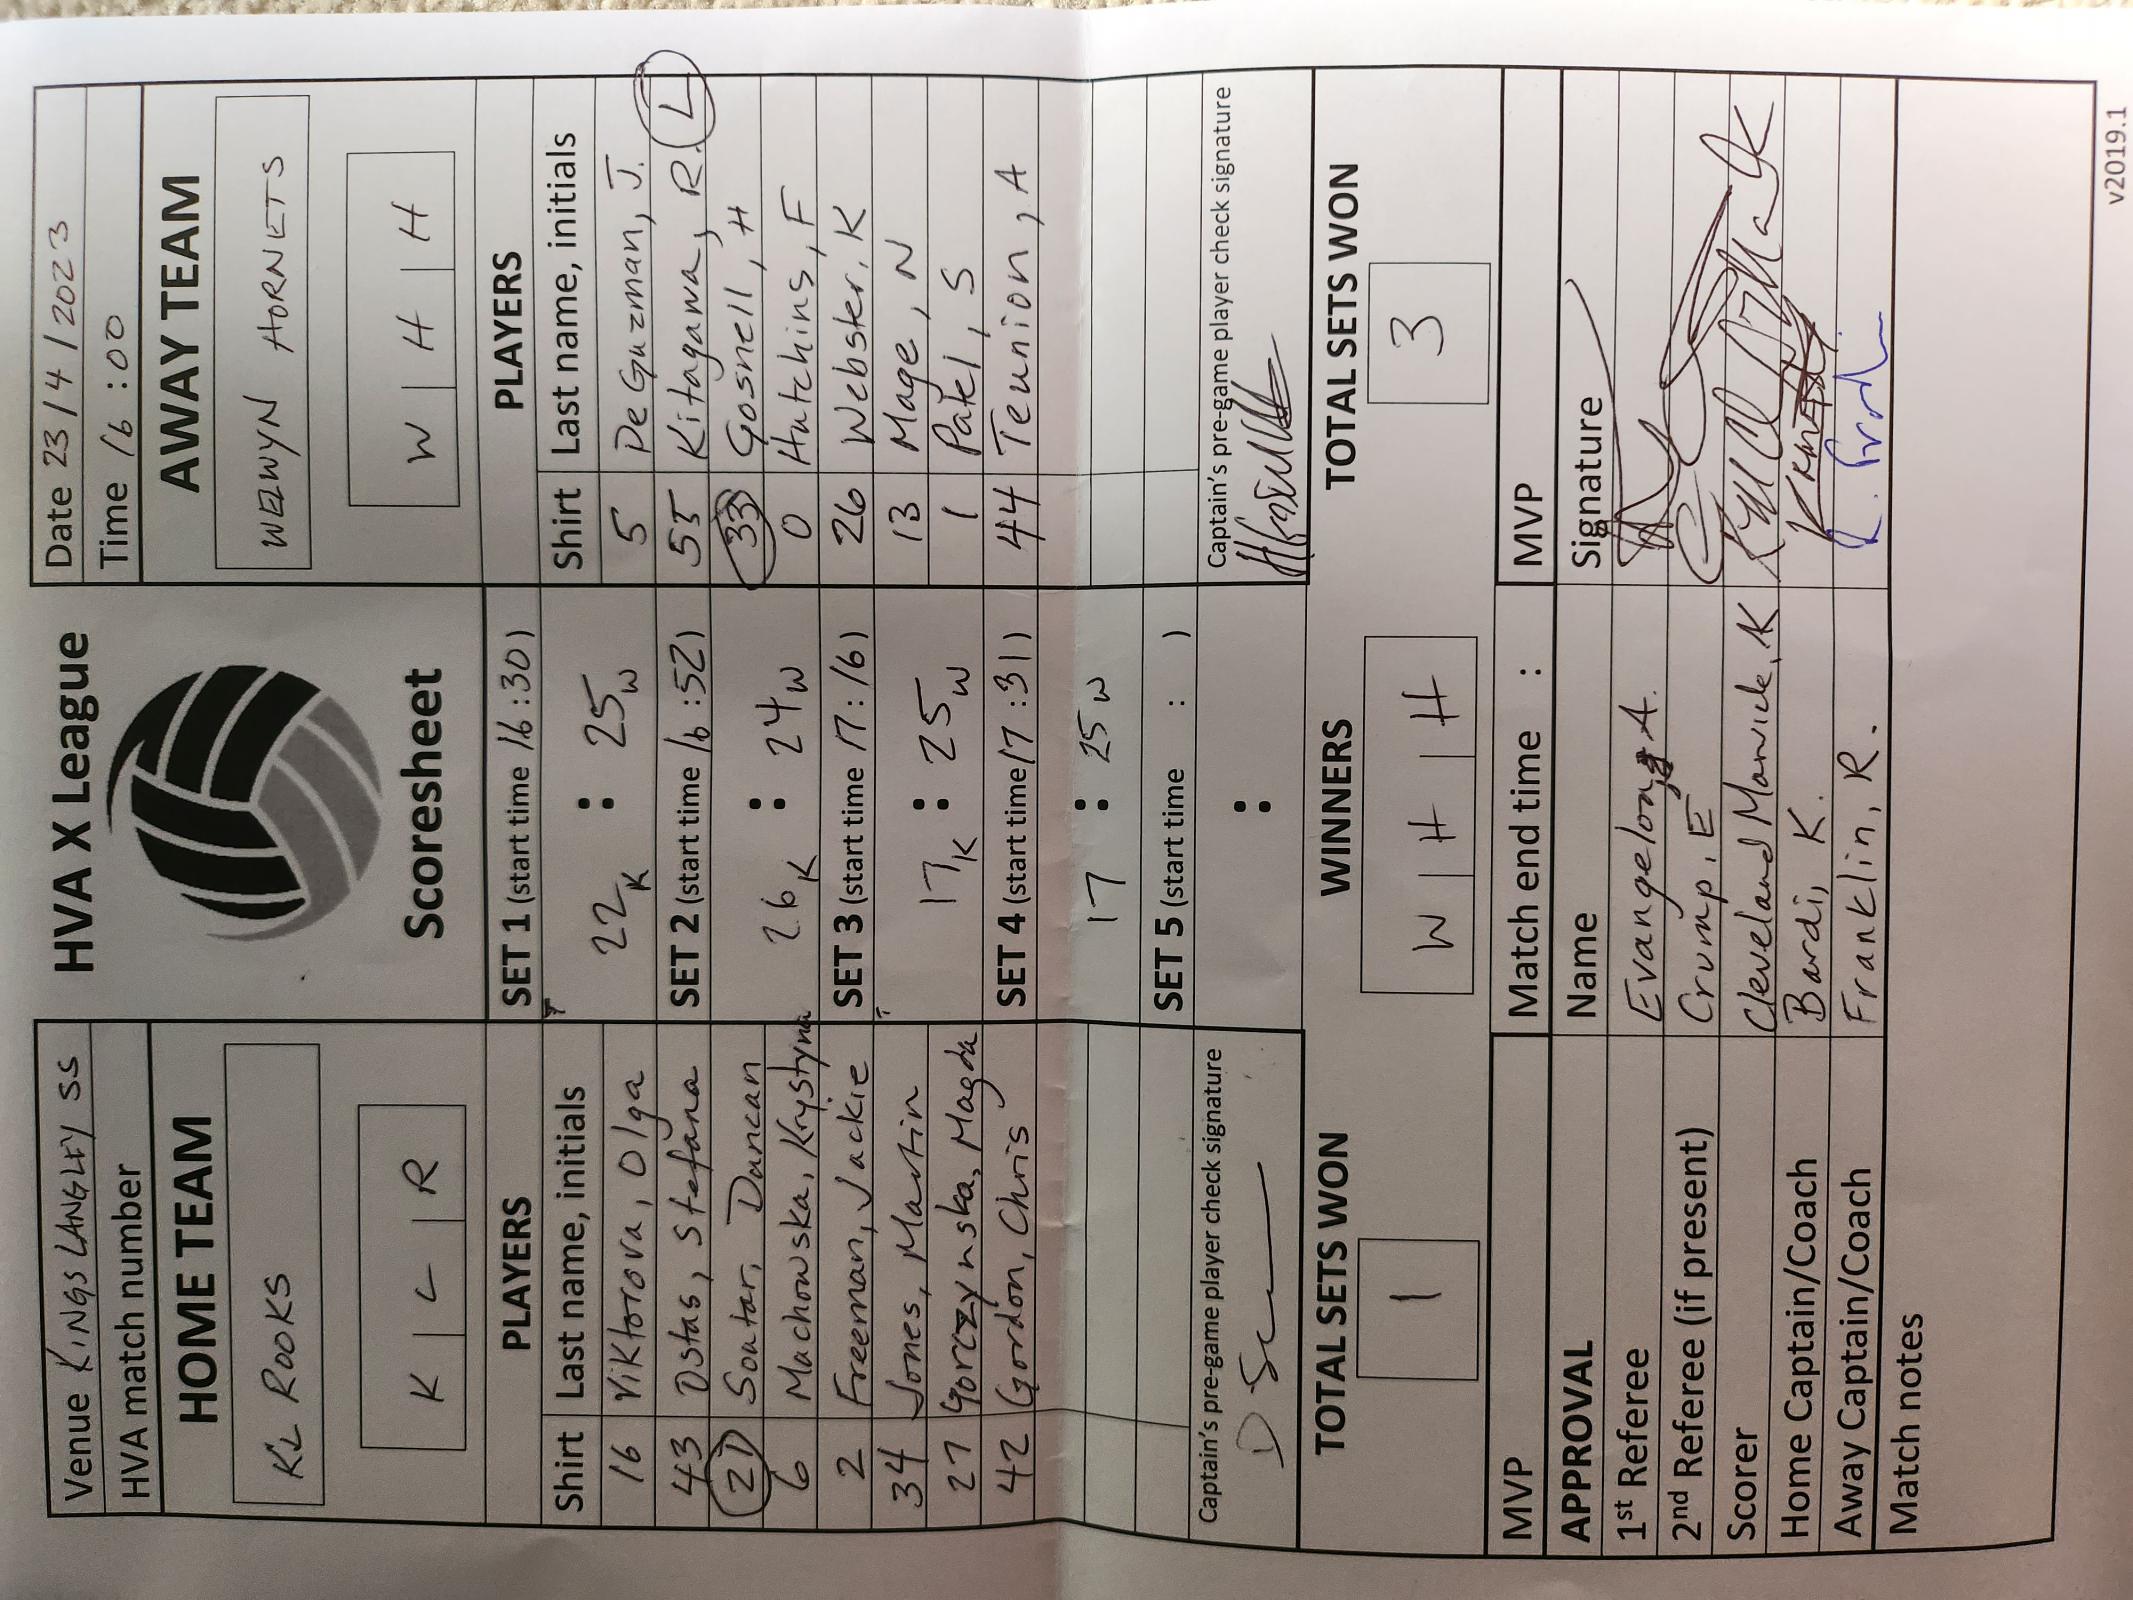 Venue KINGS LANGLEY SS
HVA match number
HVA X League
Date 23/4/2023
Time 16:00
HOME TEAM
KL ROOKS
K L R
Scoresheet
AWAY TEAM
WELWYN HORNETS
W H H
PLAYERS
Shirt Last name, initials
16 Viktorova, Olga
43 Ostas, Stefana
21 Soutar, Duncan
6 Machowska, Krystyna
2 Freeman, Jackie
34 Jones, Martin
27 Gorczynska, Magda
42 Gordon, Chris
Captain's pre-game player check signature
SET 1 (start time 16:30)
22K : 25W
SET 2 (start time 16:52)
26K : 24W
SET 3 (start time 17:16)
17K : 25W
SET 4 (start time 17:31)
17 : 25W
SET 5 (start time : )
:
PLAYERS
Shirt Last name, initials
5 De Guzman, J.
55 Kitagawa, R. L
33 Gosnell, H
0 Hutchins, F
26 Webster, K
13 Mage, N
1 Patel, S
44 Teunion, A
Captain's pre-game player check signature
TOTAL SETS WON
1
WINNERS
W H H
TOTAL SETS WON
3
MVP
Match end time :
MVP
APPROVAL Name Signature
1st Referee Evangelou, A.
2nd Referee (if present) Crump, E
Scorer Cleveland Marwick, K
Home Captain/Coach Bardi, K.
Away Captain/Coach Franklin, R.
Match notes
v2019.1